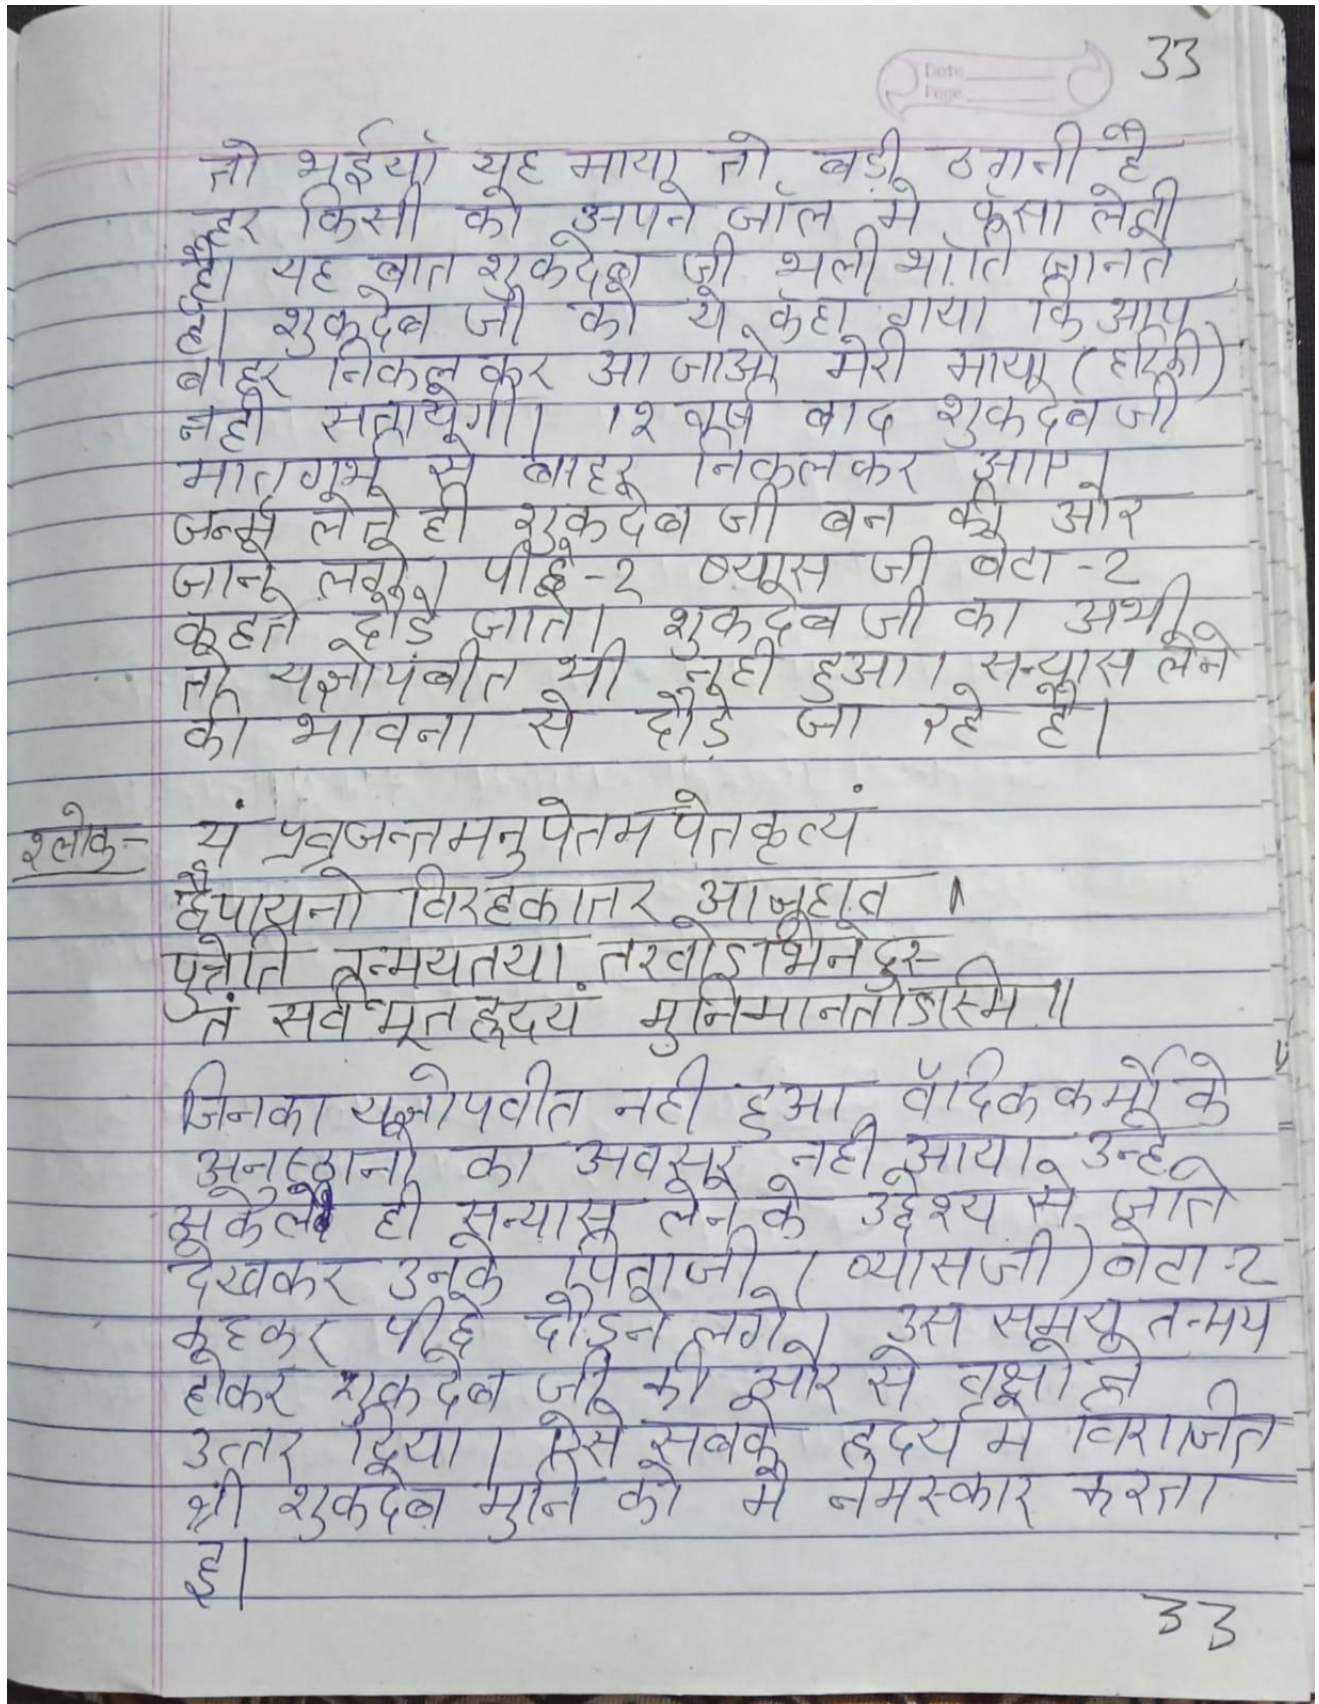 33
Date
Page
तो भईयाँ यह माया तो बड़ी ठगनी है
हर किसी को अपने जॉल मे फॅसा लेती
है। यह बात शुकदेब जी भली भॉति जानते
है। शुकदेब जी को ये कहा गया कि आप
बाहर निकल कर आ जाओ मेरी माया (हरिकी)
नही सतायेगी। १२ वर्ष बाद शुकदेब जी
मातृगर्भ से बाहर निकलकर आए।
जन्म लेते ही शुकदेब जी बन की ओर
जाने लगे। पीछे-२ ब्यास जी बेटा-२
कहते दौड़े जाते। शुकदेब जी का अभी
तो यज्ञोपबीत भी नही हुआ। सन्यास लेने
की भावना से दौड़े जा रहे है।
श्लोक- यं प्रव्रजन्तमनुपेतमपेतकृत्यं
द्वैपायनो विरहकातर आजुहाव ।
पुत्रेति तन्मयतया तरवोऽभिनेदुस्-
तं सर्वभूतहृदयं मुनिमानतोऽस्मि ॥
जिनका यज्ञोपवीत नही हुआ वॅदिक कर्मो के
अनुष्ठानो का अवसर नही आया उन्हे
अकेले ही सन्यास लेने के उद्देश्य से जाते
देखकर उनके पिताजी (व्यासजी) बेटा-२
कहकर पीछे दौड़ने लगे। उस समय तन्मय
होकर शुकदेब जी की ओर से वृक्षो ने
उत्तर दिया। ऐसे सबके हृदय मे विराजित
श्री शुकदेब मुनि को मै नमस्कार करता
हूं।
33